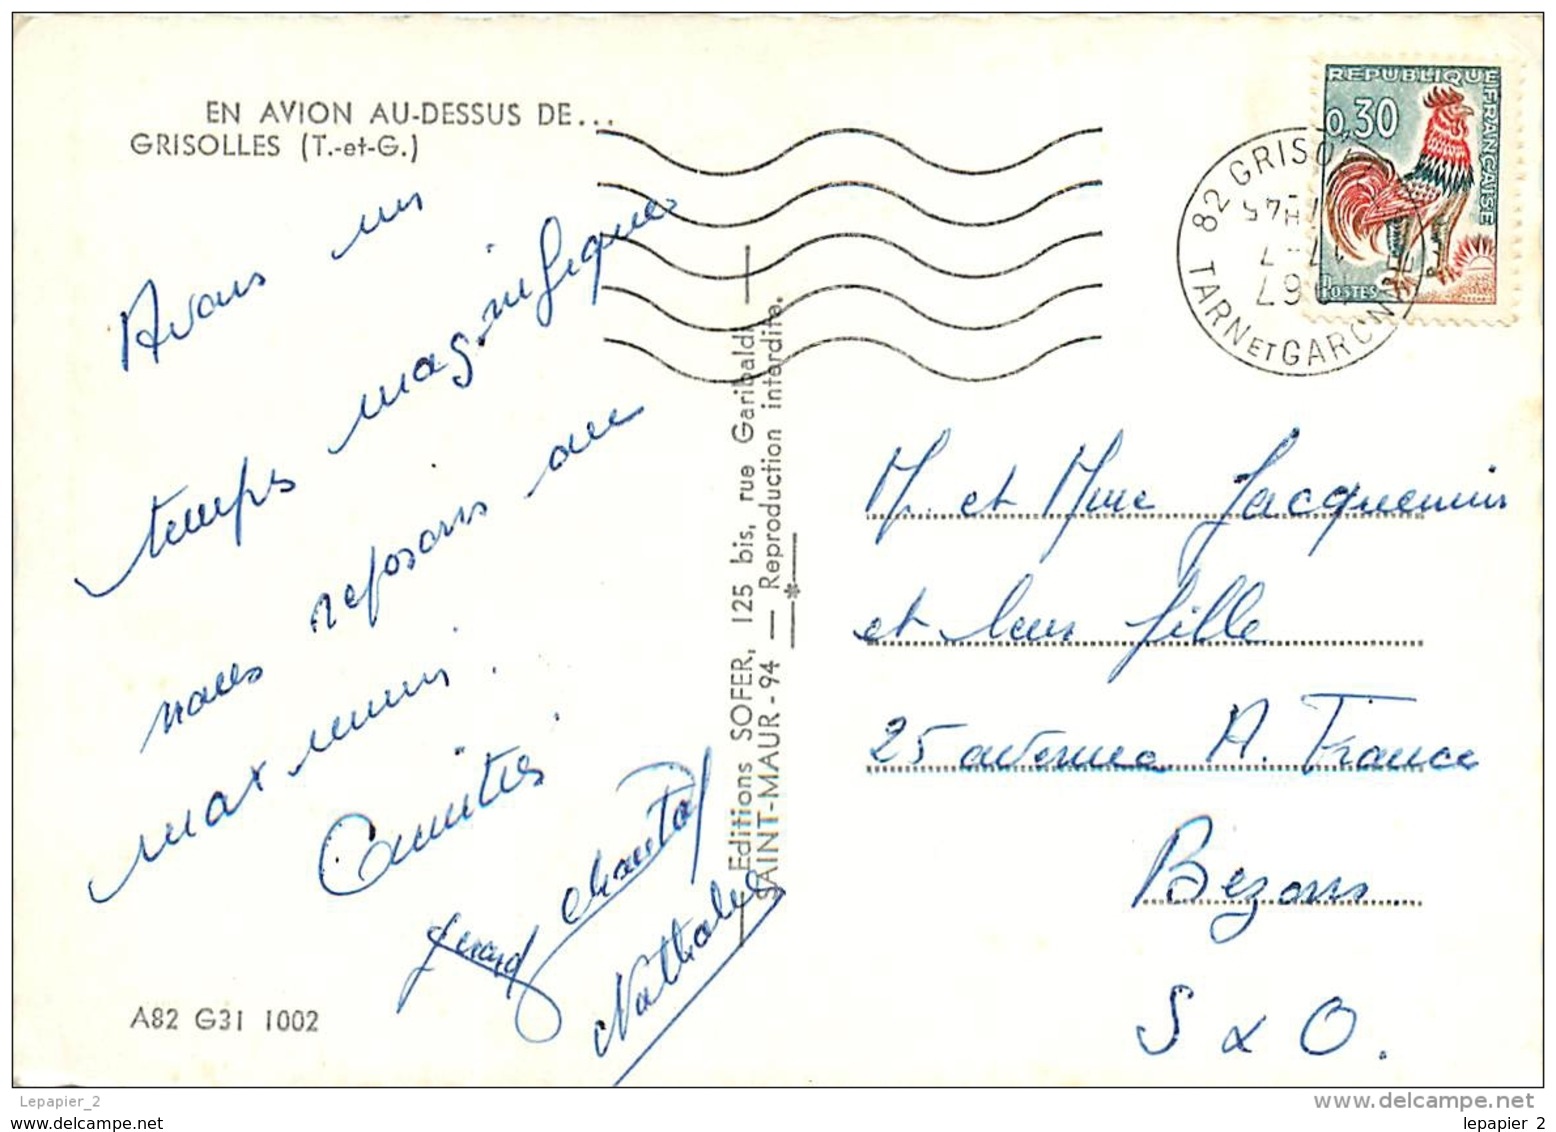 EN AVION AU-DESSUS DE...
GRISOLLES (T.-et-G.)
Avons un
temps magnifique
nous reposons au
maximum.
Amitiés.
Gérard Chantal
Nathalie
A82 G31 1002
Editions SOFER, 125 bis, rue Garibaldi
SAINT-MAUR - 94 — Reproduction interdite.
REPUBLIQUE FRANÇAISE
0,30
POSTES
82 GRISO
TARN ET GARONNE
H45
7-7
67
M. et Mme Jacquemin
et leur fille
25 avenue A. France
Bezons
S & O.
Lepapier_2
www.delcampe.net
www.delcampe.net
lepapier_2